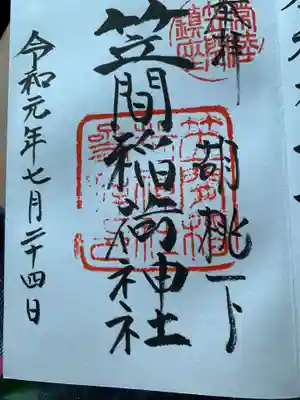 奉拝
胡桃下
笠間稲荷神社
令和元年七月二十四日
常陸
鎮座